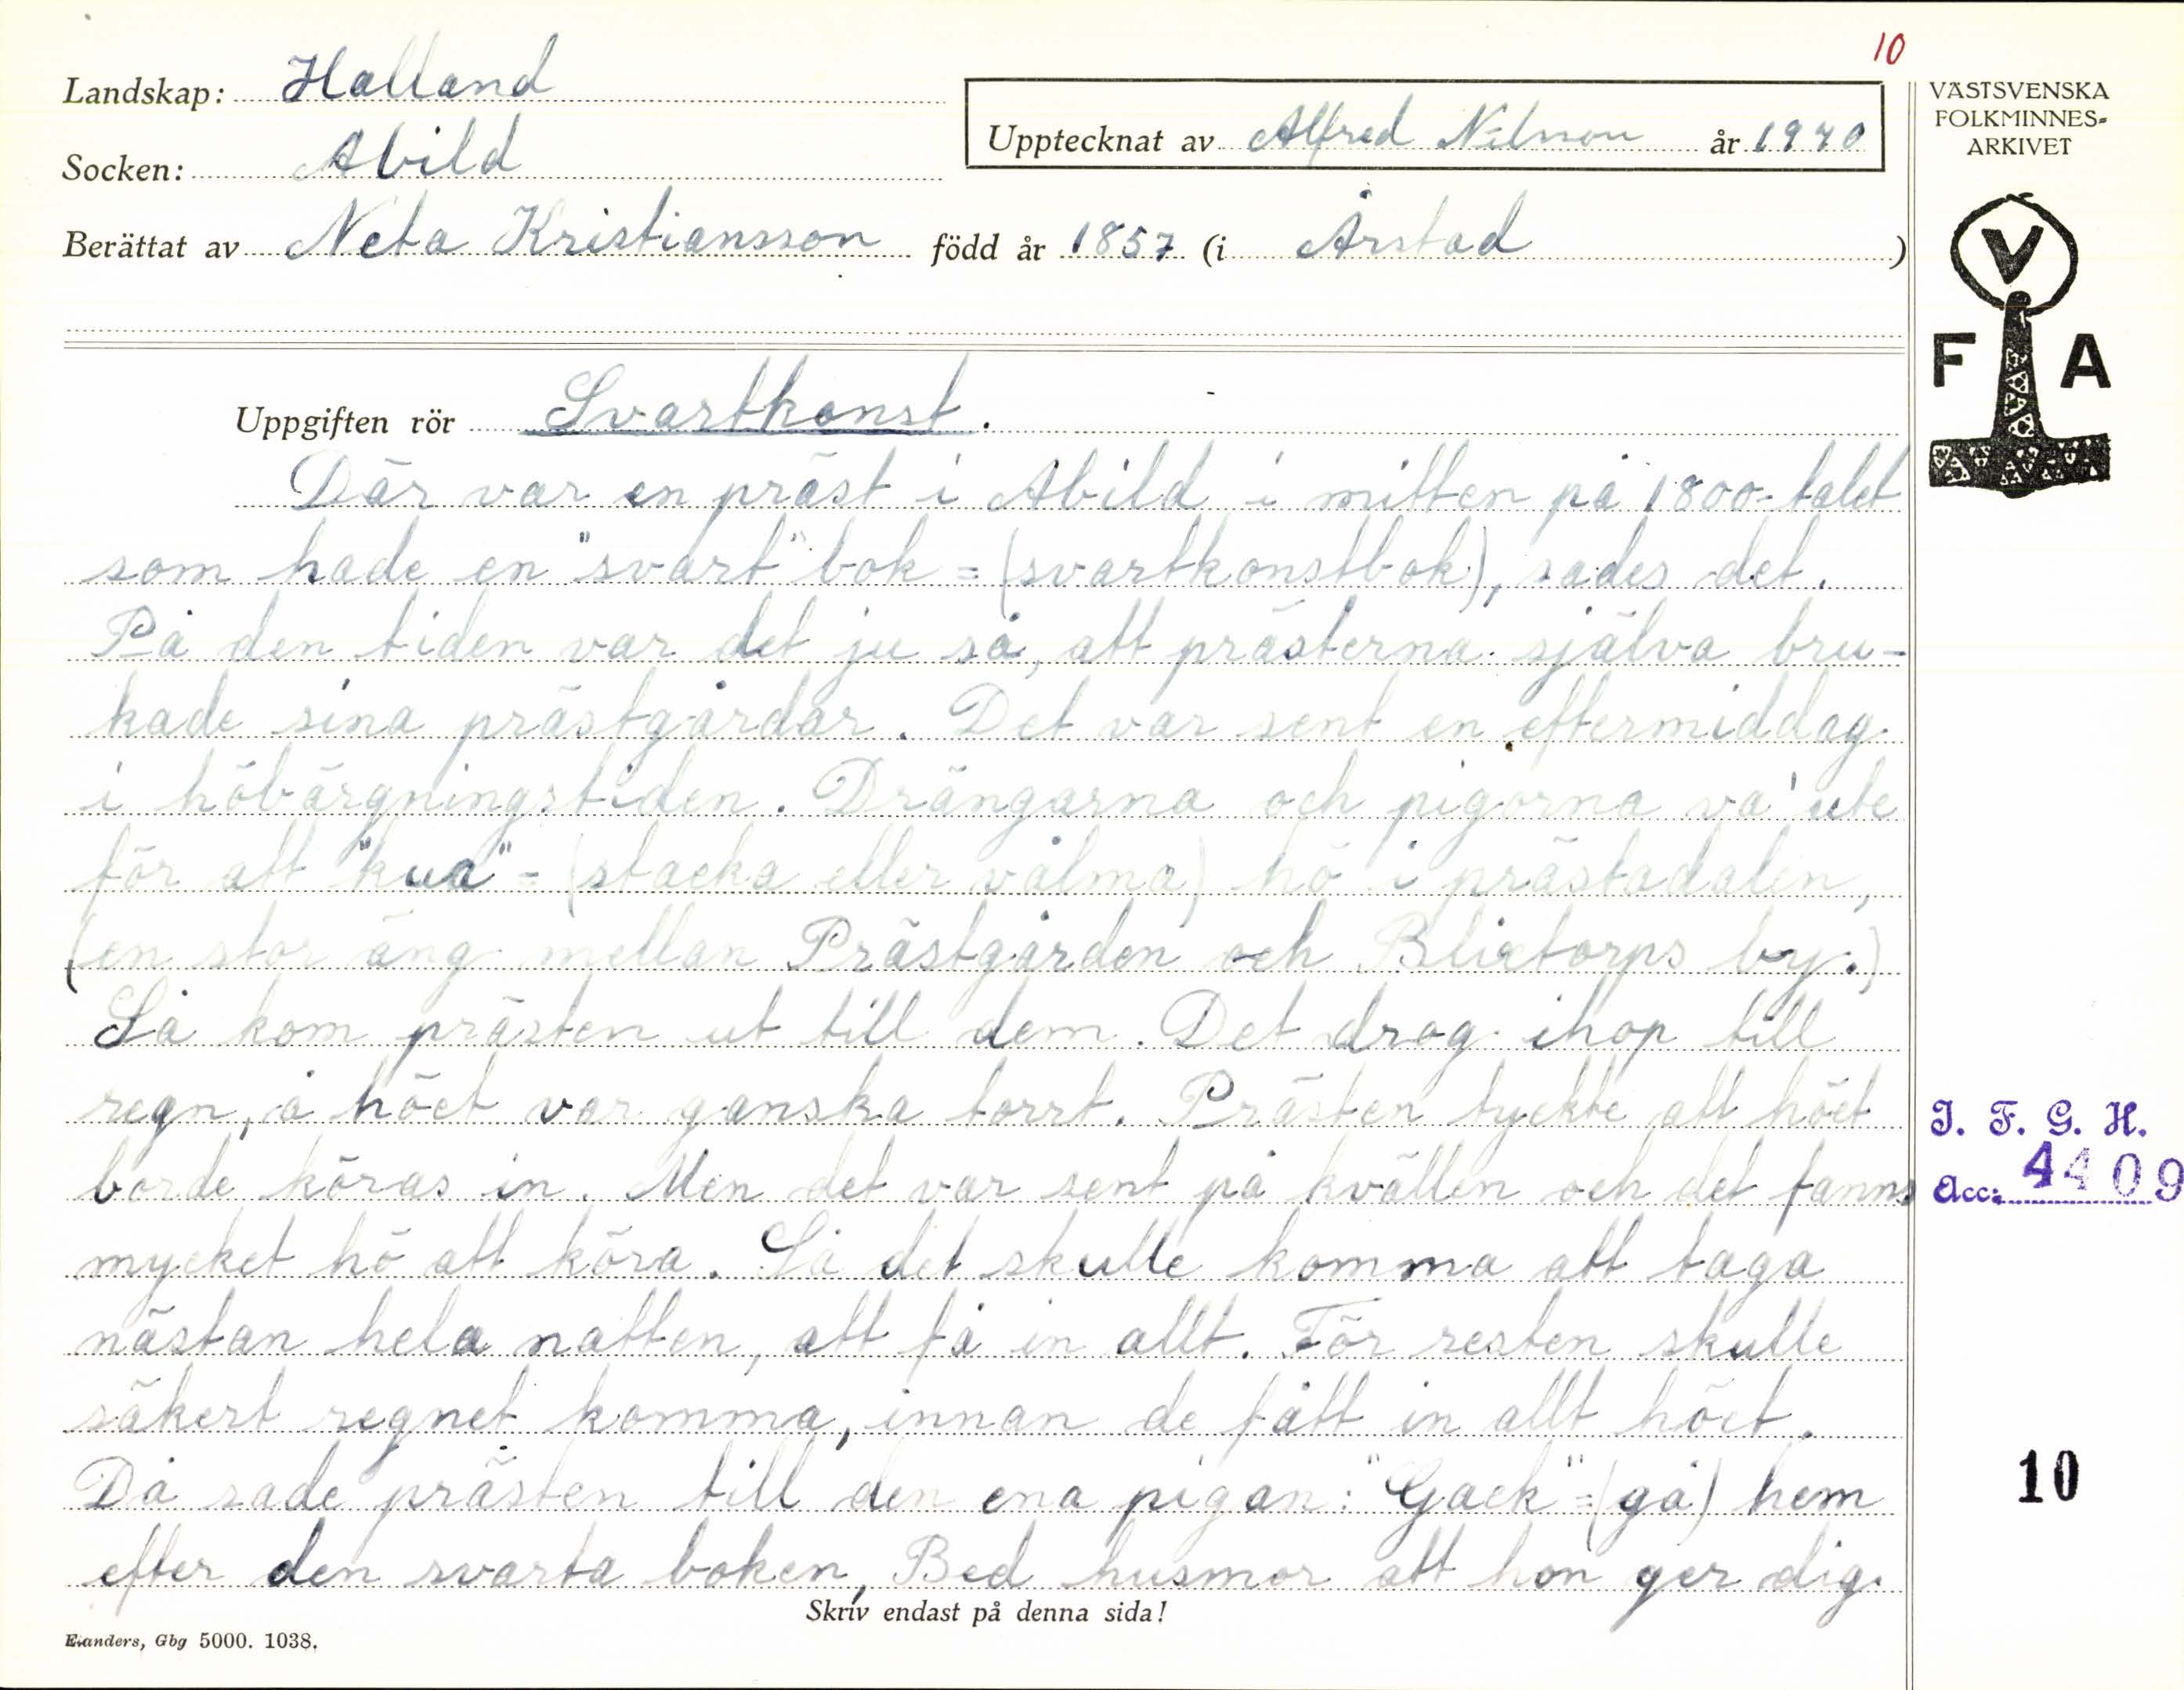 10
Landskap: Halland
Upptecknat av Alfred Nilsson år 1940
VÄSTSVENSKA
FOLKMINNES-
ARKIVET
Socken: Abild
Berättat av Neta Kristiansson född år 1857 (i Årstad)
V
F A
Uppgiften rör Svartkonst.
Där var en präst i Abild i mitten på 1800-talet
som hade en "svart" bok = (svartkonstbok), sades det.
På den tiden var det ju så, att prästerna själva bru-
kade sina prästgårdar. Det var sent en eftermiddag
i höbärgningstiden. Drängarna och pigorna va' ute
för att "kua" = (stacka eller vålma) hö i prästadalen,
(en stor äng mellan Prästgården och Blixtorps by.)
Så kom prästen ut till dem. Det drog ihop till
regn, å höet var ganska torrt. Prästen tyckte att höet
borde köras in. Men det var sent på kvällen och det fanns
mycket hö att köra. Så det skulle komma att taga
nästan hela natten, att få in allt. För resten skulle
säkert regnet komma, innan de fått in allt höet.
Då sade prästen till den ena pigan: "Gack" = (gå) hem
efter den svarta boken, Bed husmor att hon ger dig
Skriv endast på denna sida!
Elanders, Gbg 5000. 1038.
I. F. G. H.
Acc: 4409
10